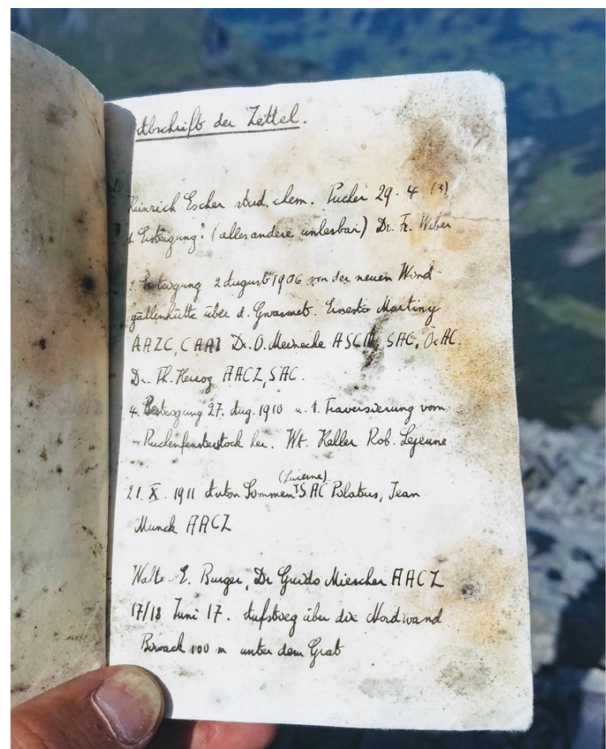 Abschrift der Zettel.
Heinrich Escher stud. chem. 29. 4 (?)
1. Besteigung? (alles andere unlesbar) Dr. Fr. Weber
2. Besteigung 2 August 1906 von der neuen Wind-
gällenhütte über d. Gwasmet. Ernesto Martiny
AAZC, CAAI Dr. O. Meinecke SAC, OeAC.
Dr. Th. Herzog AACZ, SAC.
4. Besteigung 27. Aug. 1910 u. 1. Traversierung vom
Ruchenfensterstock her. Wt. Keller Rob. Lejeune
(Lucerne)
21. X. 1911 Anton SAC Pilatus, Jean
Munck AACZ
E. Burger, Dr Guido Miescher AACZ
17/18 Juni 17. Aufstieg über die Nordwand
Biwack 100 m unter dem Grat